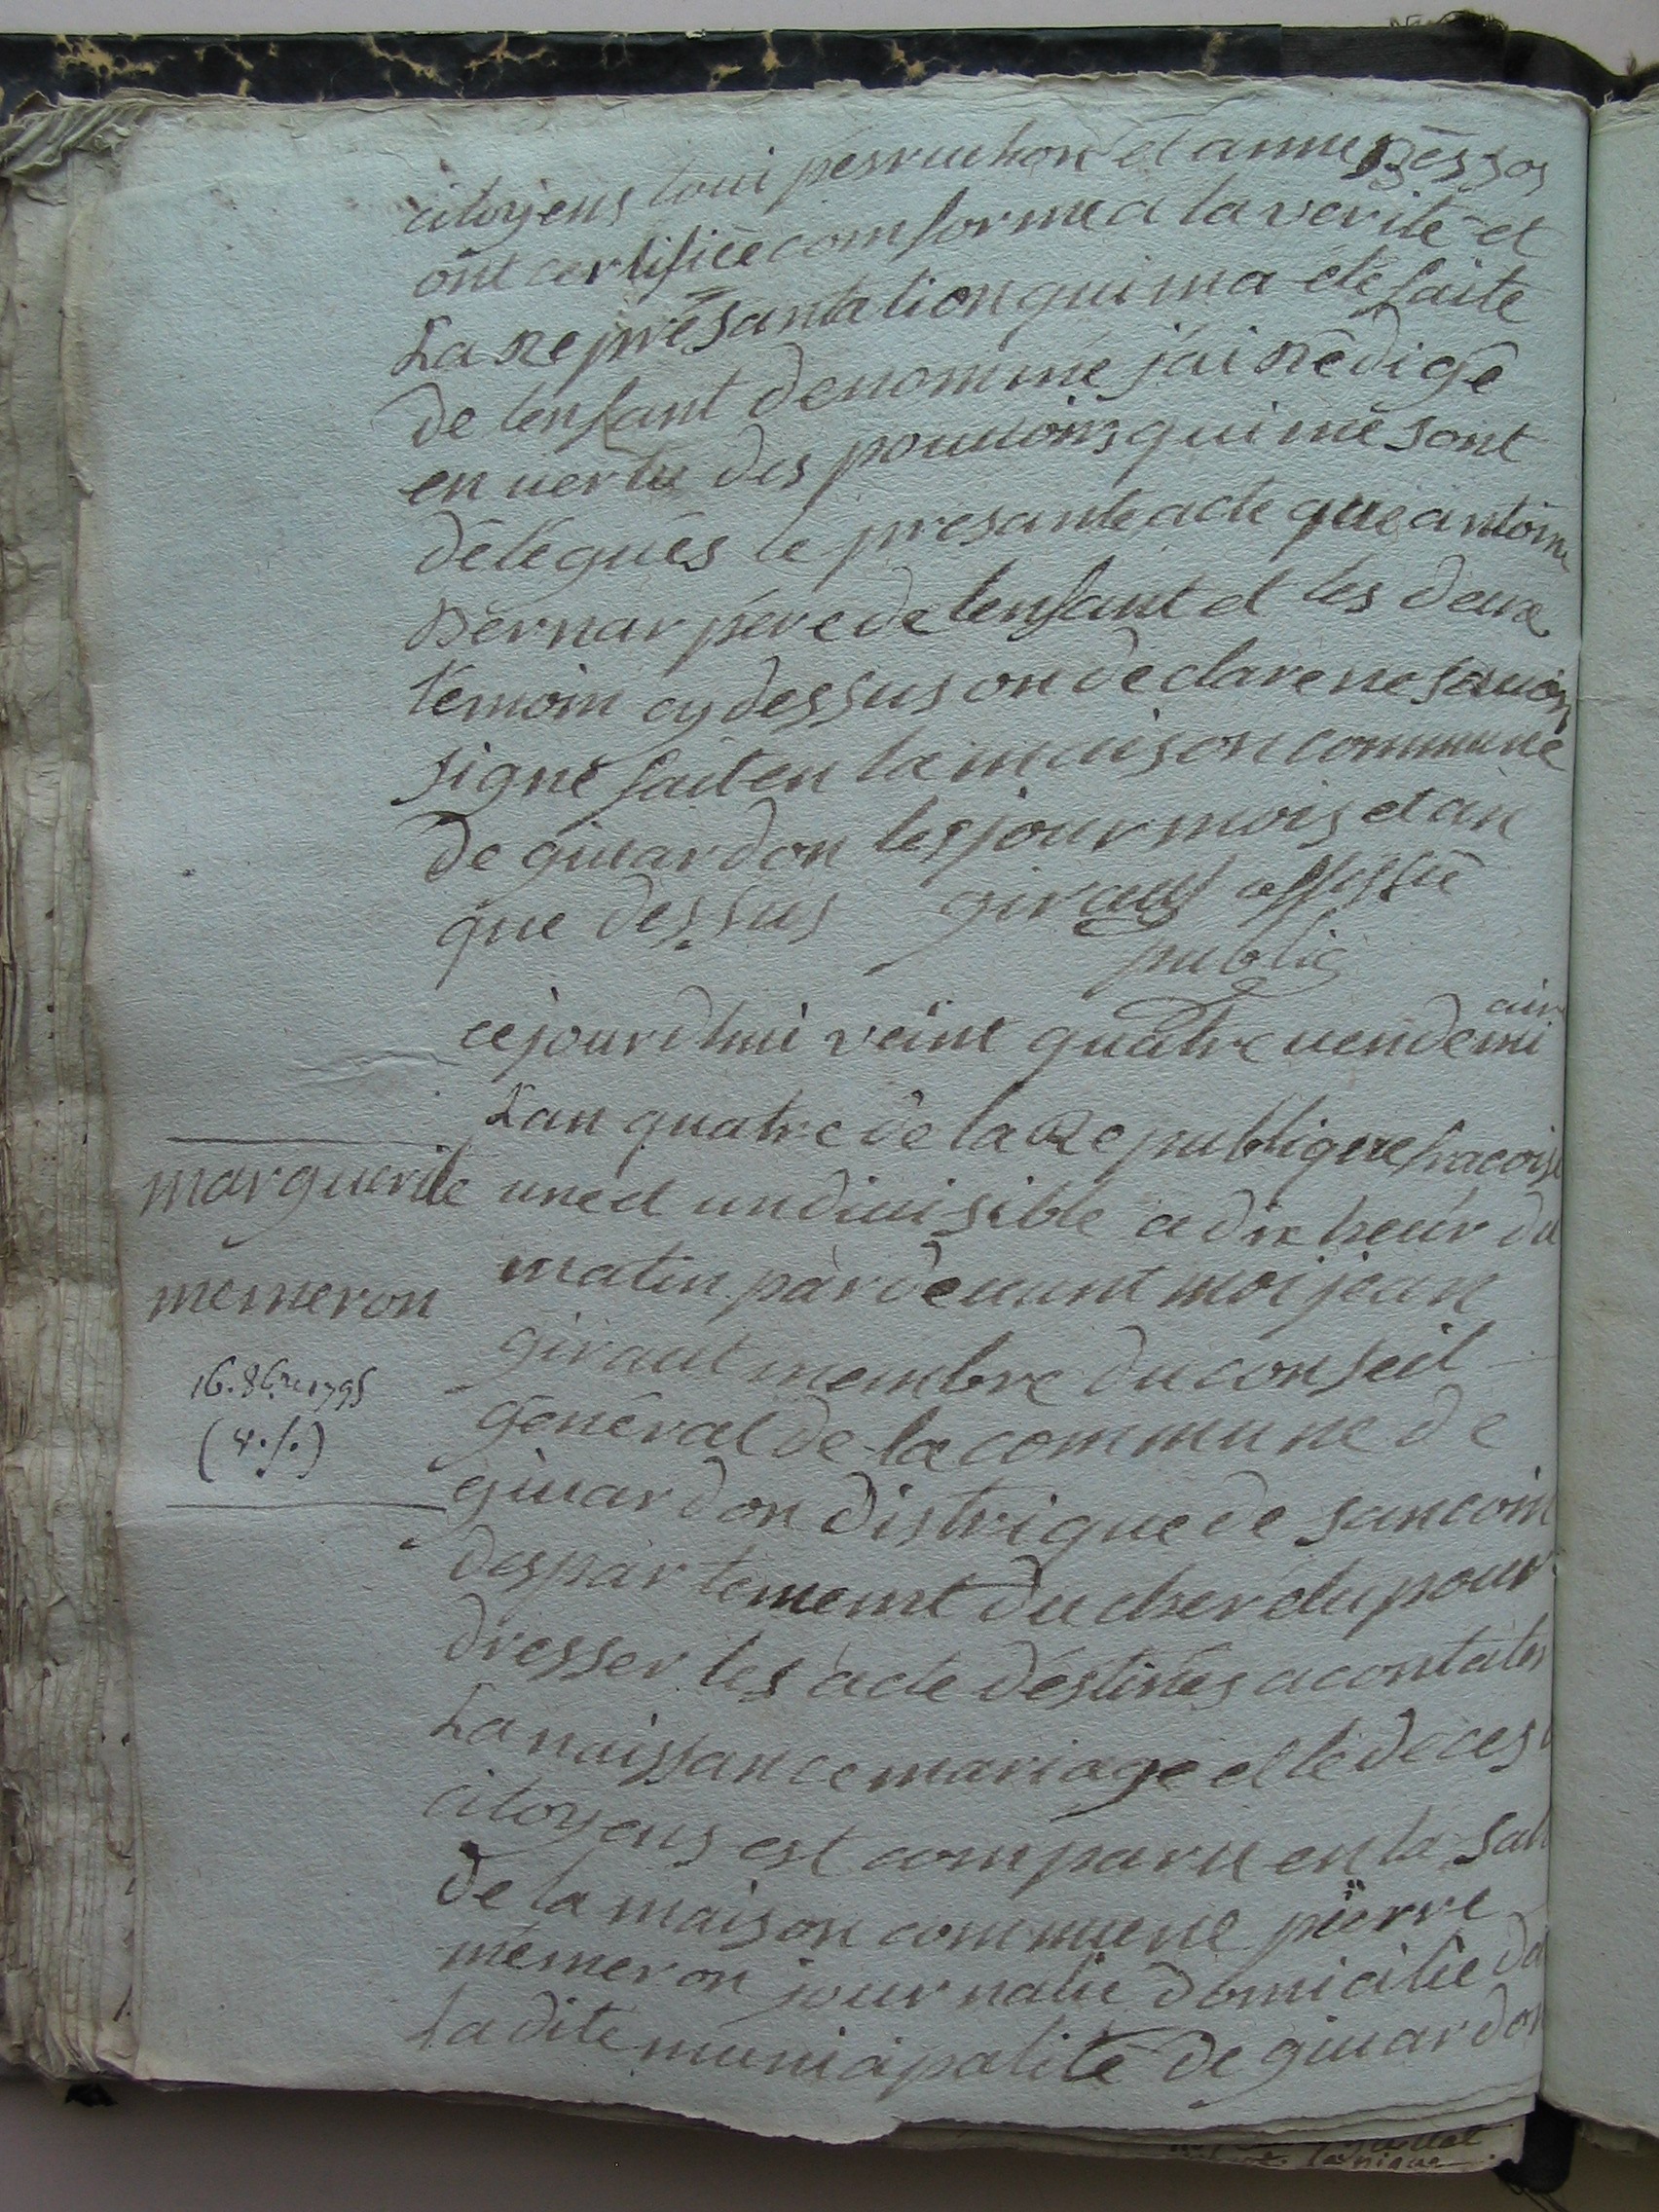 citoyens loui perruchon et anne Bessos
ont certifiée comforme a la verité et
La Représantation qui ma été faite
de lenfant denommé j'ai Rédigé
en vertu des pouuoirs qui me sont
délégués le presante acte que antoine
Bernar pére de lenfant et les deux
témoin cy dessus on déclare ne sauoir
signé fait en la maison commune
de giuardon les jour mois et an
que dessus giraut offissié
public
cejourdhui veint quatre uendemi
aire
Lan quatre de la République fracoise
marguerite
une et undiuisible a dix heur du
matin pardeuant moi jean
memeron
giraut membre du conseil
16. 8bre 1795
(v.s.)
général de la commune de
giuardon distrique de sancoin
despartememt du cher elu pour
dresser les acte déstinés a contater
La naissance mariage et le deces
citoyens est comparu en la sale
de la maison commune pïerre
mémeron journalié domicilié da
La dite municipalité de giuardon